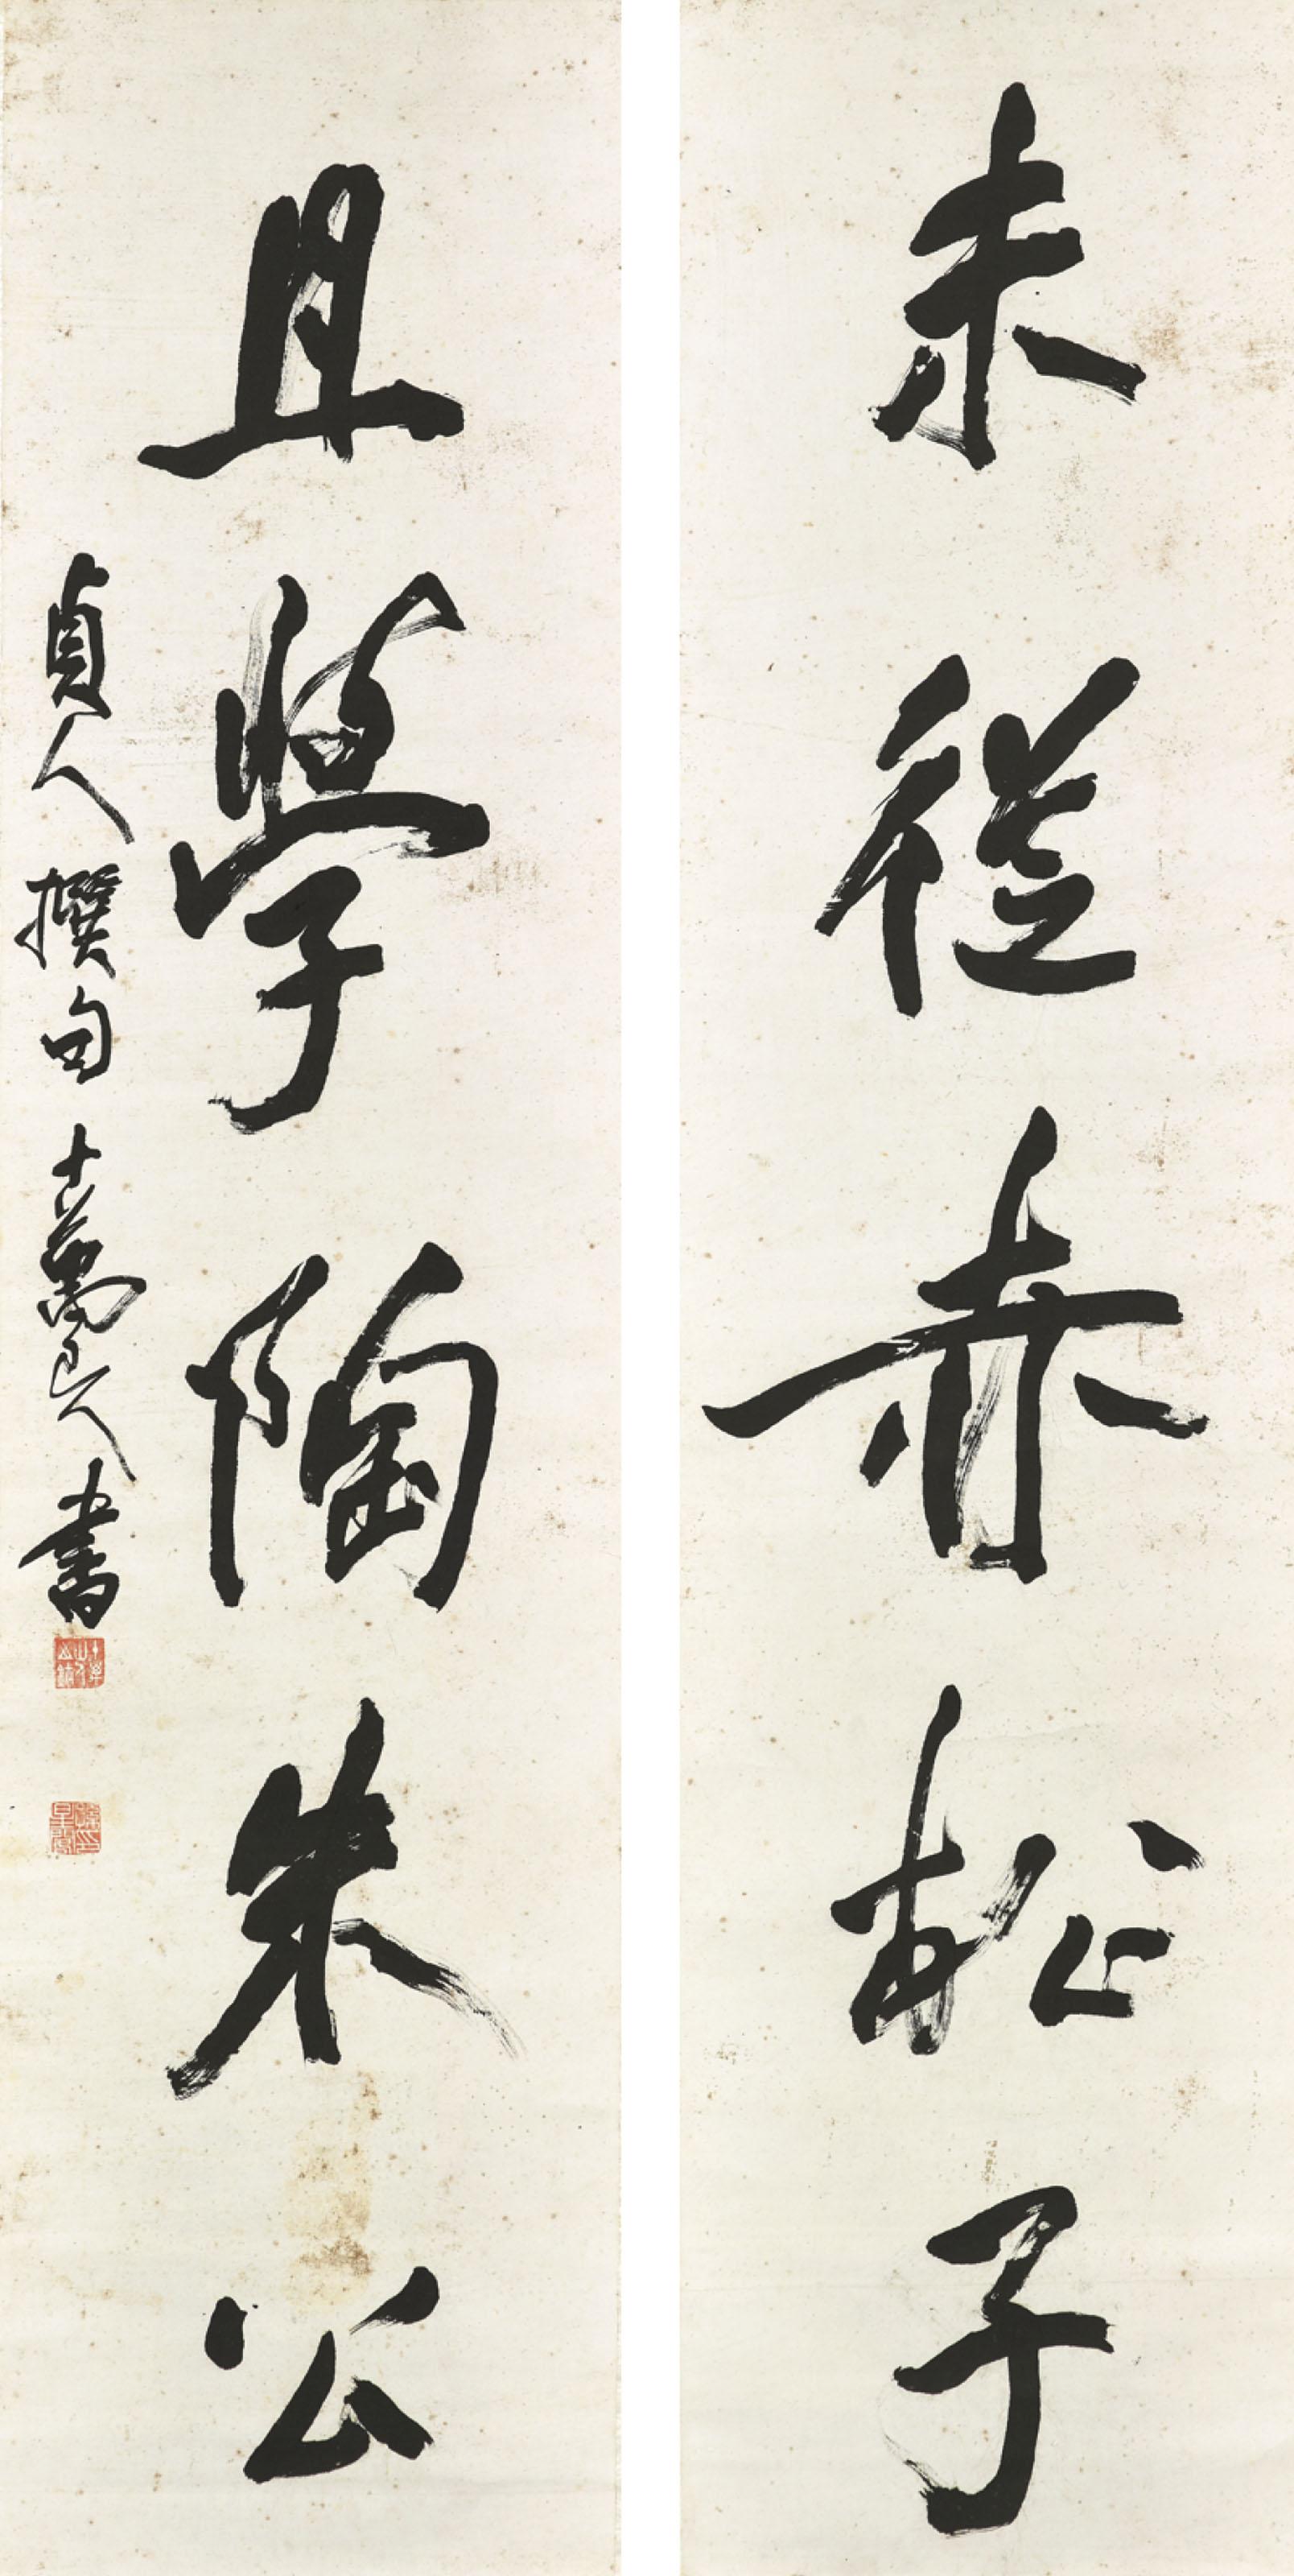 未從赤松子
且學陶朱公
貞人撰句十萬良人書